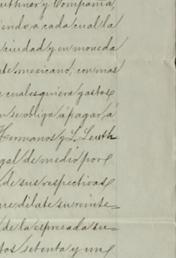 uthner y Compañia,
iendo a cada cual la
ciudad y en moneda
te mexicano, con mas
cualesquiera gastos
se obliga á pagar á
Hermanos y L. Leuth
gal de medio por
de sus respectivas
re dilate su reinte-
de la espresada su-
tos setenta y un